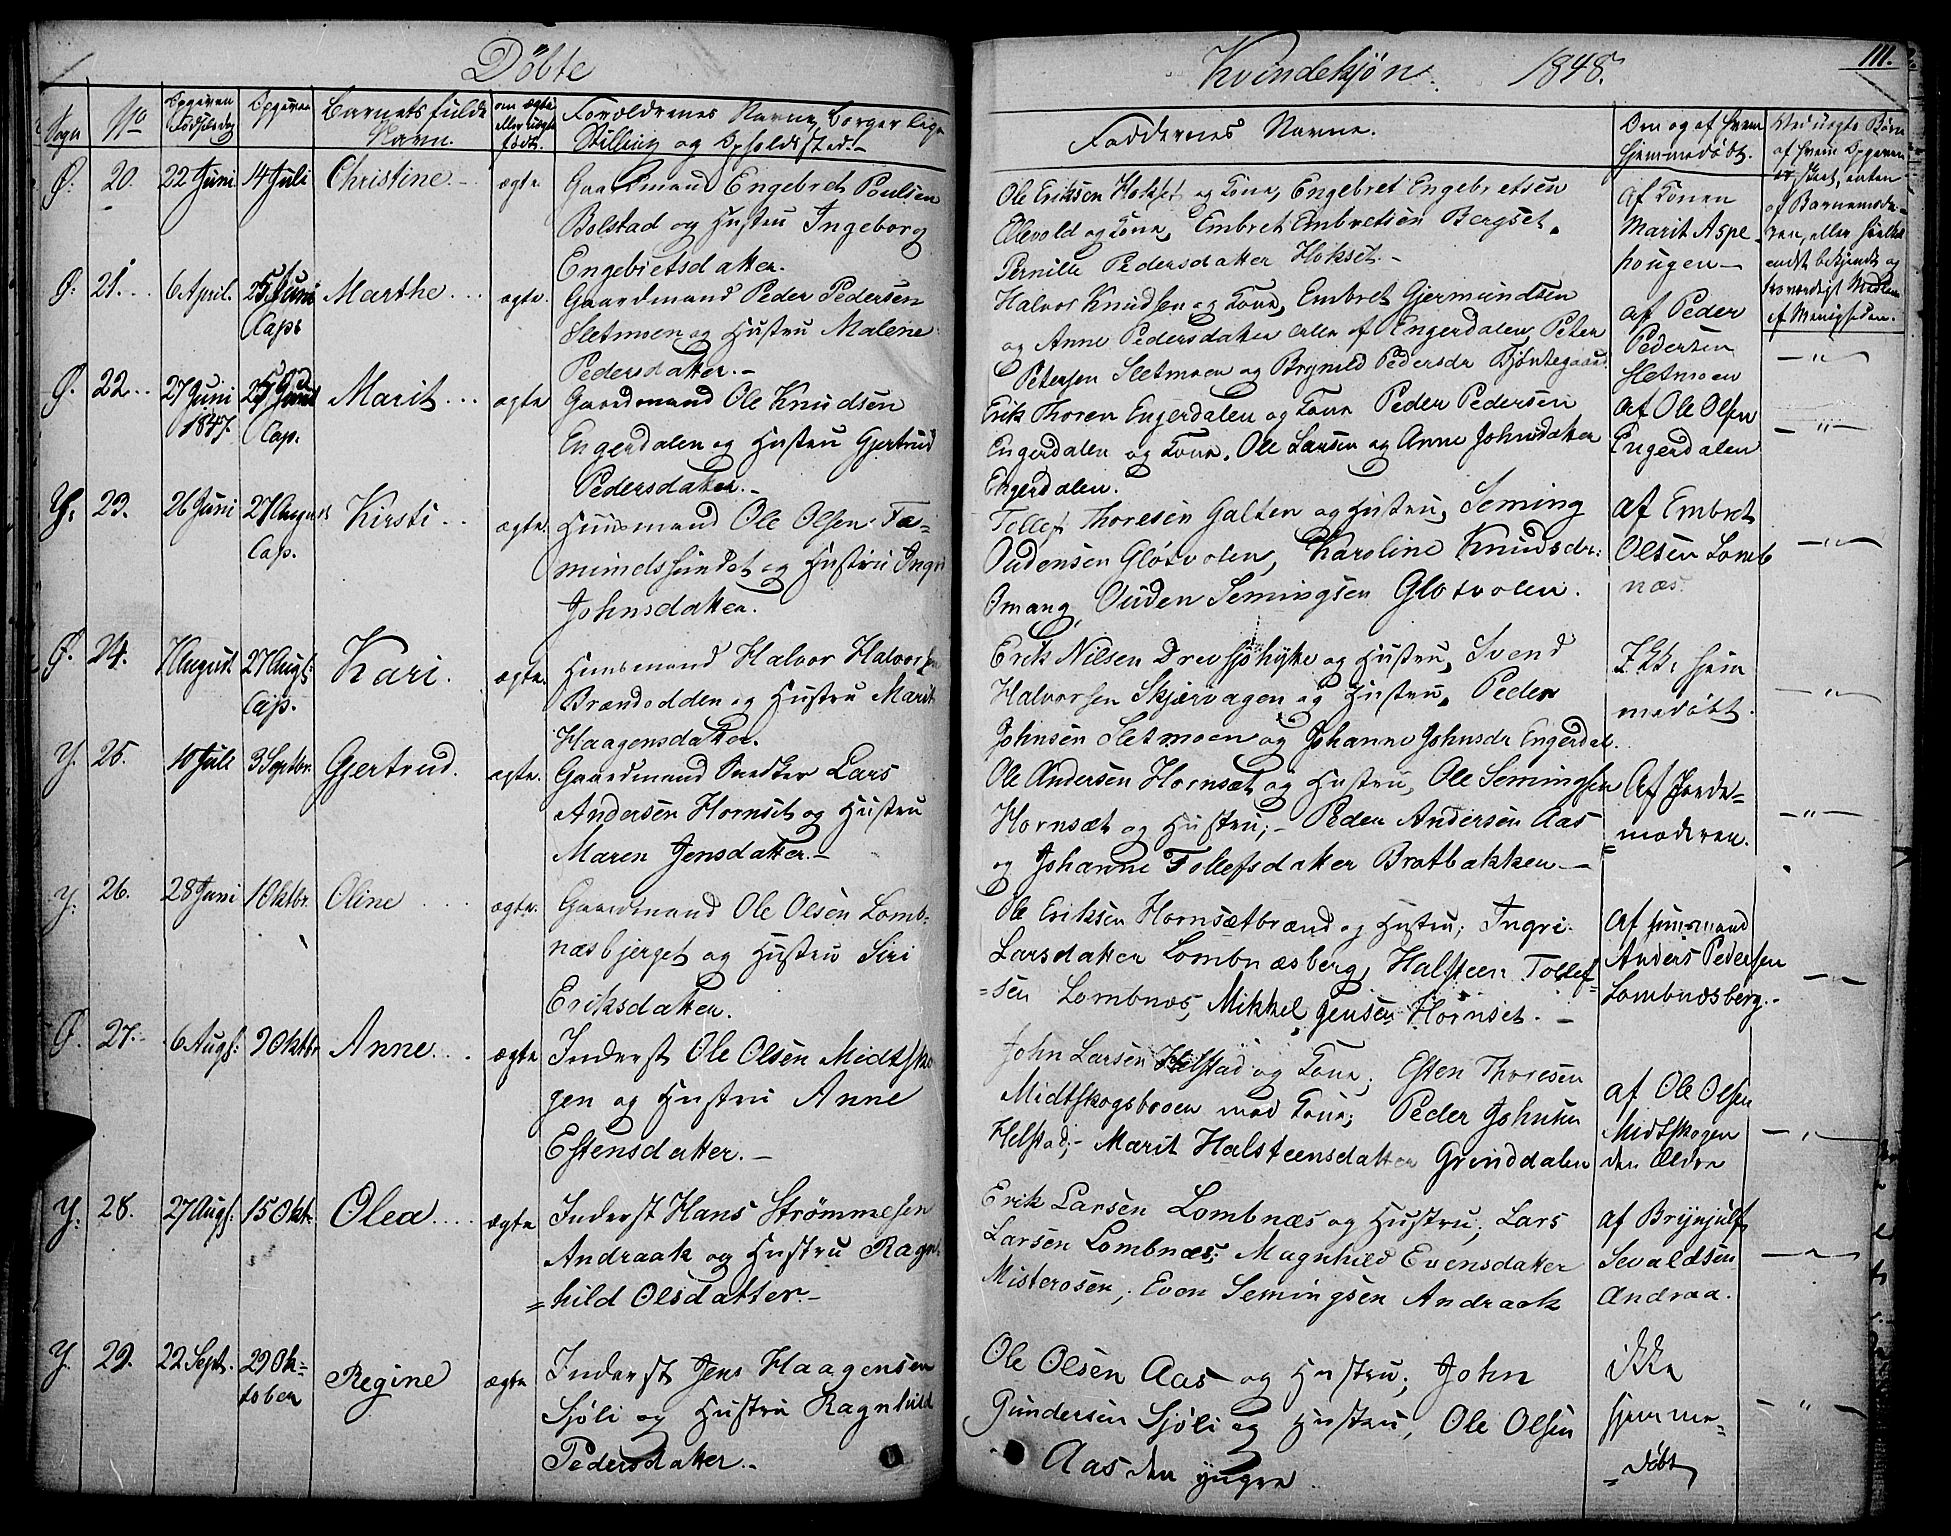 Döbte
Sogn
No
Opgiven Fødselsdag
Opgiven
Barnets fulde Navn.
om ægte eller uægte födt.
Forældrenes Navne, borgerlige Stilling og Opholdsted.
Ø. 20. 22 Juni 14 Juli Christine. ægte
Gaardmand Engebret Poulsen
Bolstad og Hustru Ingeborg
Engebretsdatter.
Ø. 21. 6 April. 25 Juni Cap. Marthe ægte.
Gaardmand Peder Pedersen
Sletmoen og Hustru Malene
Pedersdatter.
Ø. 22 27 Juni 1847. 25 Juni Cap. Marit ægte
Gaardmand Ole Knudsen
Engerdalen og Hustru Gjertrud
Pedersdatter.
Y. 23. 26 Juni 27 August Cap. Kirsti ægte.
Huusmand Ole Olsen Fæ-
mundshundet og Hustru Ingri
Johnsdatter.
Ø. 24. 1 August. 27 Augs: Cap. Kari. ægte.
Huusmand Halvor Halvorsen
Brændodden og Hustru Marit
Haagensdatter.
Y. 25. 10 Juli 3 Septbr. Gjertrud. ægte.
Gaardmand Snedker Lars
Andersen Hornset og Hustru
Maren Jensdatter.
Y. 26. 28 Juni 1 Oktbr. Oline ægte.
Gaardmand Ole Olsen Lomb-
næsbjerget og Hustru Siri
Eriksdatter.
Ø. 27. 6 Augs: 2 Oktbr Anne ægte
Inderst Ole Olsen Midtsko
gen og Hustru Anne
Estensdatter.
Y. 28. 27 Augs: 15 Okt. Olea ægte
Inderst Hans Strømmesen
Andraak og Hustru Ragn
=hild Olsdatter.
Y. 29. 22 Sept. 29 Ok=
tober Regine ægte
Inderst Jens Haagensen
Sjöli og Hustru Ragnhild
Pedersdatter.
Kvindekjön. 1848. 111.
Faddernes Navne.
Om og af hvem hjemmedöbt.
Ved uægte Börn
af hvem Opgaven
er skeet, enten
af Barnemode-
ren, eller hvilket
andet bekjendt og
troværdigt Medlem
af Menigheden.
Ole Eriksen Hokset og Kone, Engebret Engebretsen
Ellevold og Kone, Embret Embretsen Bergset,
Pernille Pedersdatter Hokset.
Af Konen
Marit Aspe-
hougen
Halvor Knudsen og Kone, Embret Gjermundsen
og Anne Pedersdatter alle af Engerdalen, Peter
Petersen Sletmoen og Brynild Pedersdr
af Peder
Pedersen
Sletmoen
Erik Thoren Engerdalen og Kone Peder Pedersen
Engerdalen og Kone, Ole Larsen og Anne Johnsdatter
Engerdalen.
af Ole Olsen
Engerdalen
Tollef Thoresen Galten og Hustru, Seming
Oudensen Glötvolen, Karoline Knudsdr:
Omang, Ouden Semingsen Glötvolen.
af Embret
Olsen Lomb
næs.
Erik Nilsen Drevsjöhytte og Hustru, Svend
Halvorsen Skjærvagen og Hustru, Peder
Johnsen Sletmoen og Johanne Johnsdr Engerdal.
Ikke hjem
medöbt.
Ole Andersen Hornsæt og Hustru, Ole Semingsen
Hornsæt og Hustru; Peder Andersen Aas
og Johanne Tollefsdatter Bratbakken
Af Jorde=
moderen.
Ole Eriksen Hornsætbrænd og Hustru; Ingri
Larsdatter Lombnæsberg, Halsteen Tollef=
=sen Lombnæs, Mikkel Jensen Hornset.
af Huusmand
Anders Pedersen
Lombnæsberg.
John Larsen Helstad og Kone; Esten Thoresen
Midtskogsbroen med Kone; Peder Johnsen
Helstad; Marit Halsteensdatter Grinddalen
af Ole Olsen
Midtskogen
den Ældre
Erik Larsen Lombnæs og Hustru; Lars
Larsen Lombnæs; Magnhild Evensdatter
Misterosen; Even Semingsen Andraak
af Brynjulf
Sevaldsen
Andraa.
Ole Olsen Aas og Hustru; John
Gundersen Sjöli og Hustru, Ole Olsen
Aas den yngre
ikke
hjemme=
=döbt